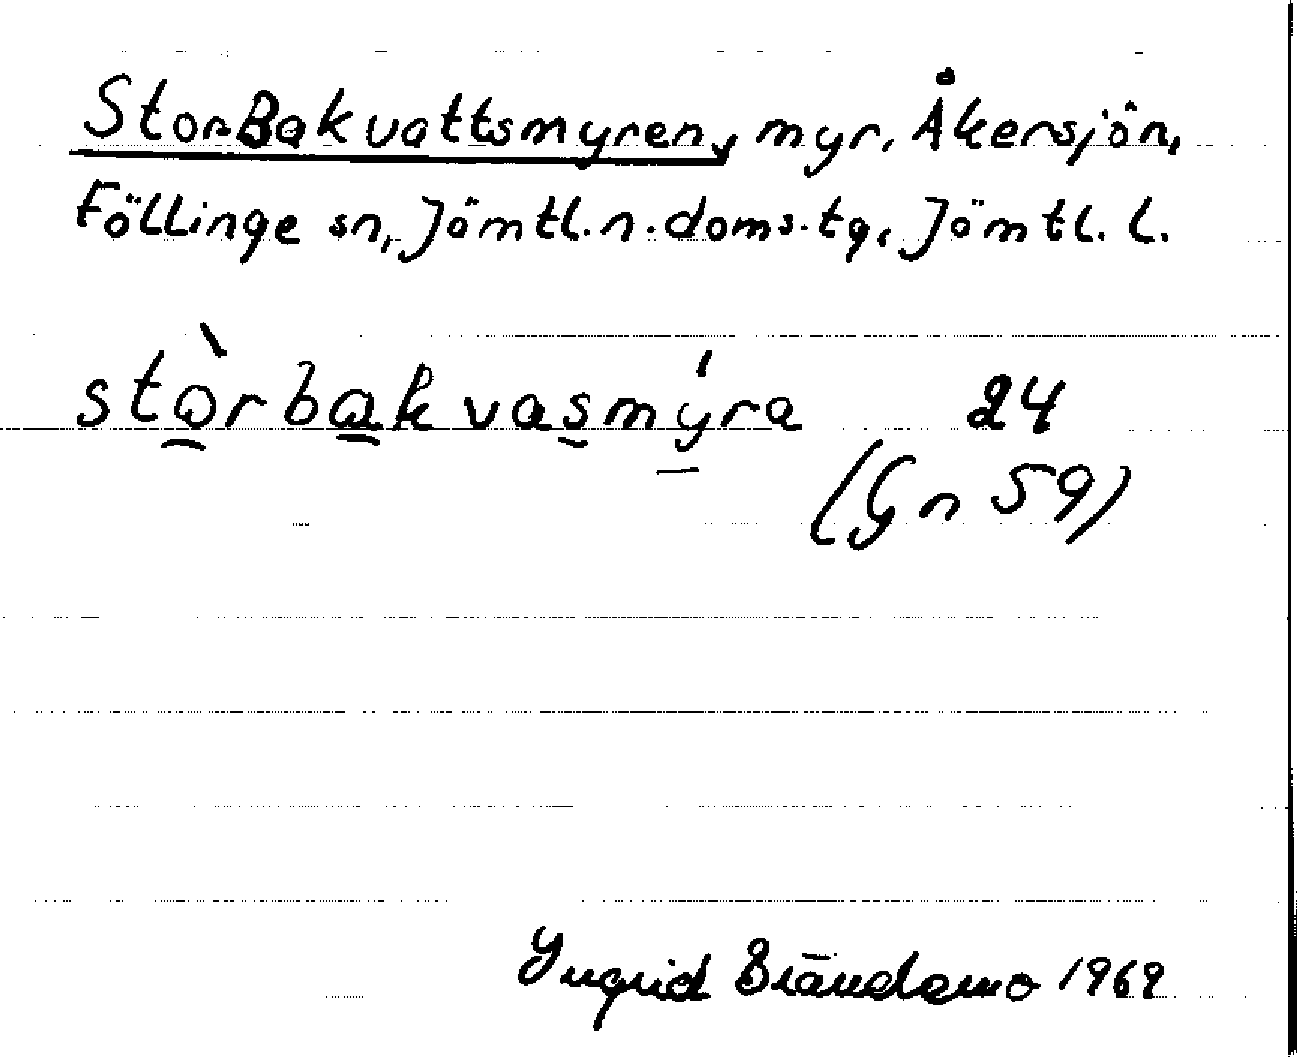 StorBakvattsmyren, myr, Åkersjön,
Föllinge sn, Jämtl. n. doms. tg, Jämtl. l.
stòrbakvasmýra 24
(Gn 59)
Yngrid Brändemo 1969